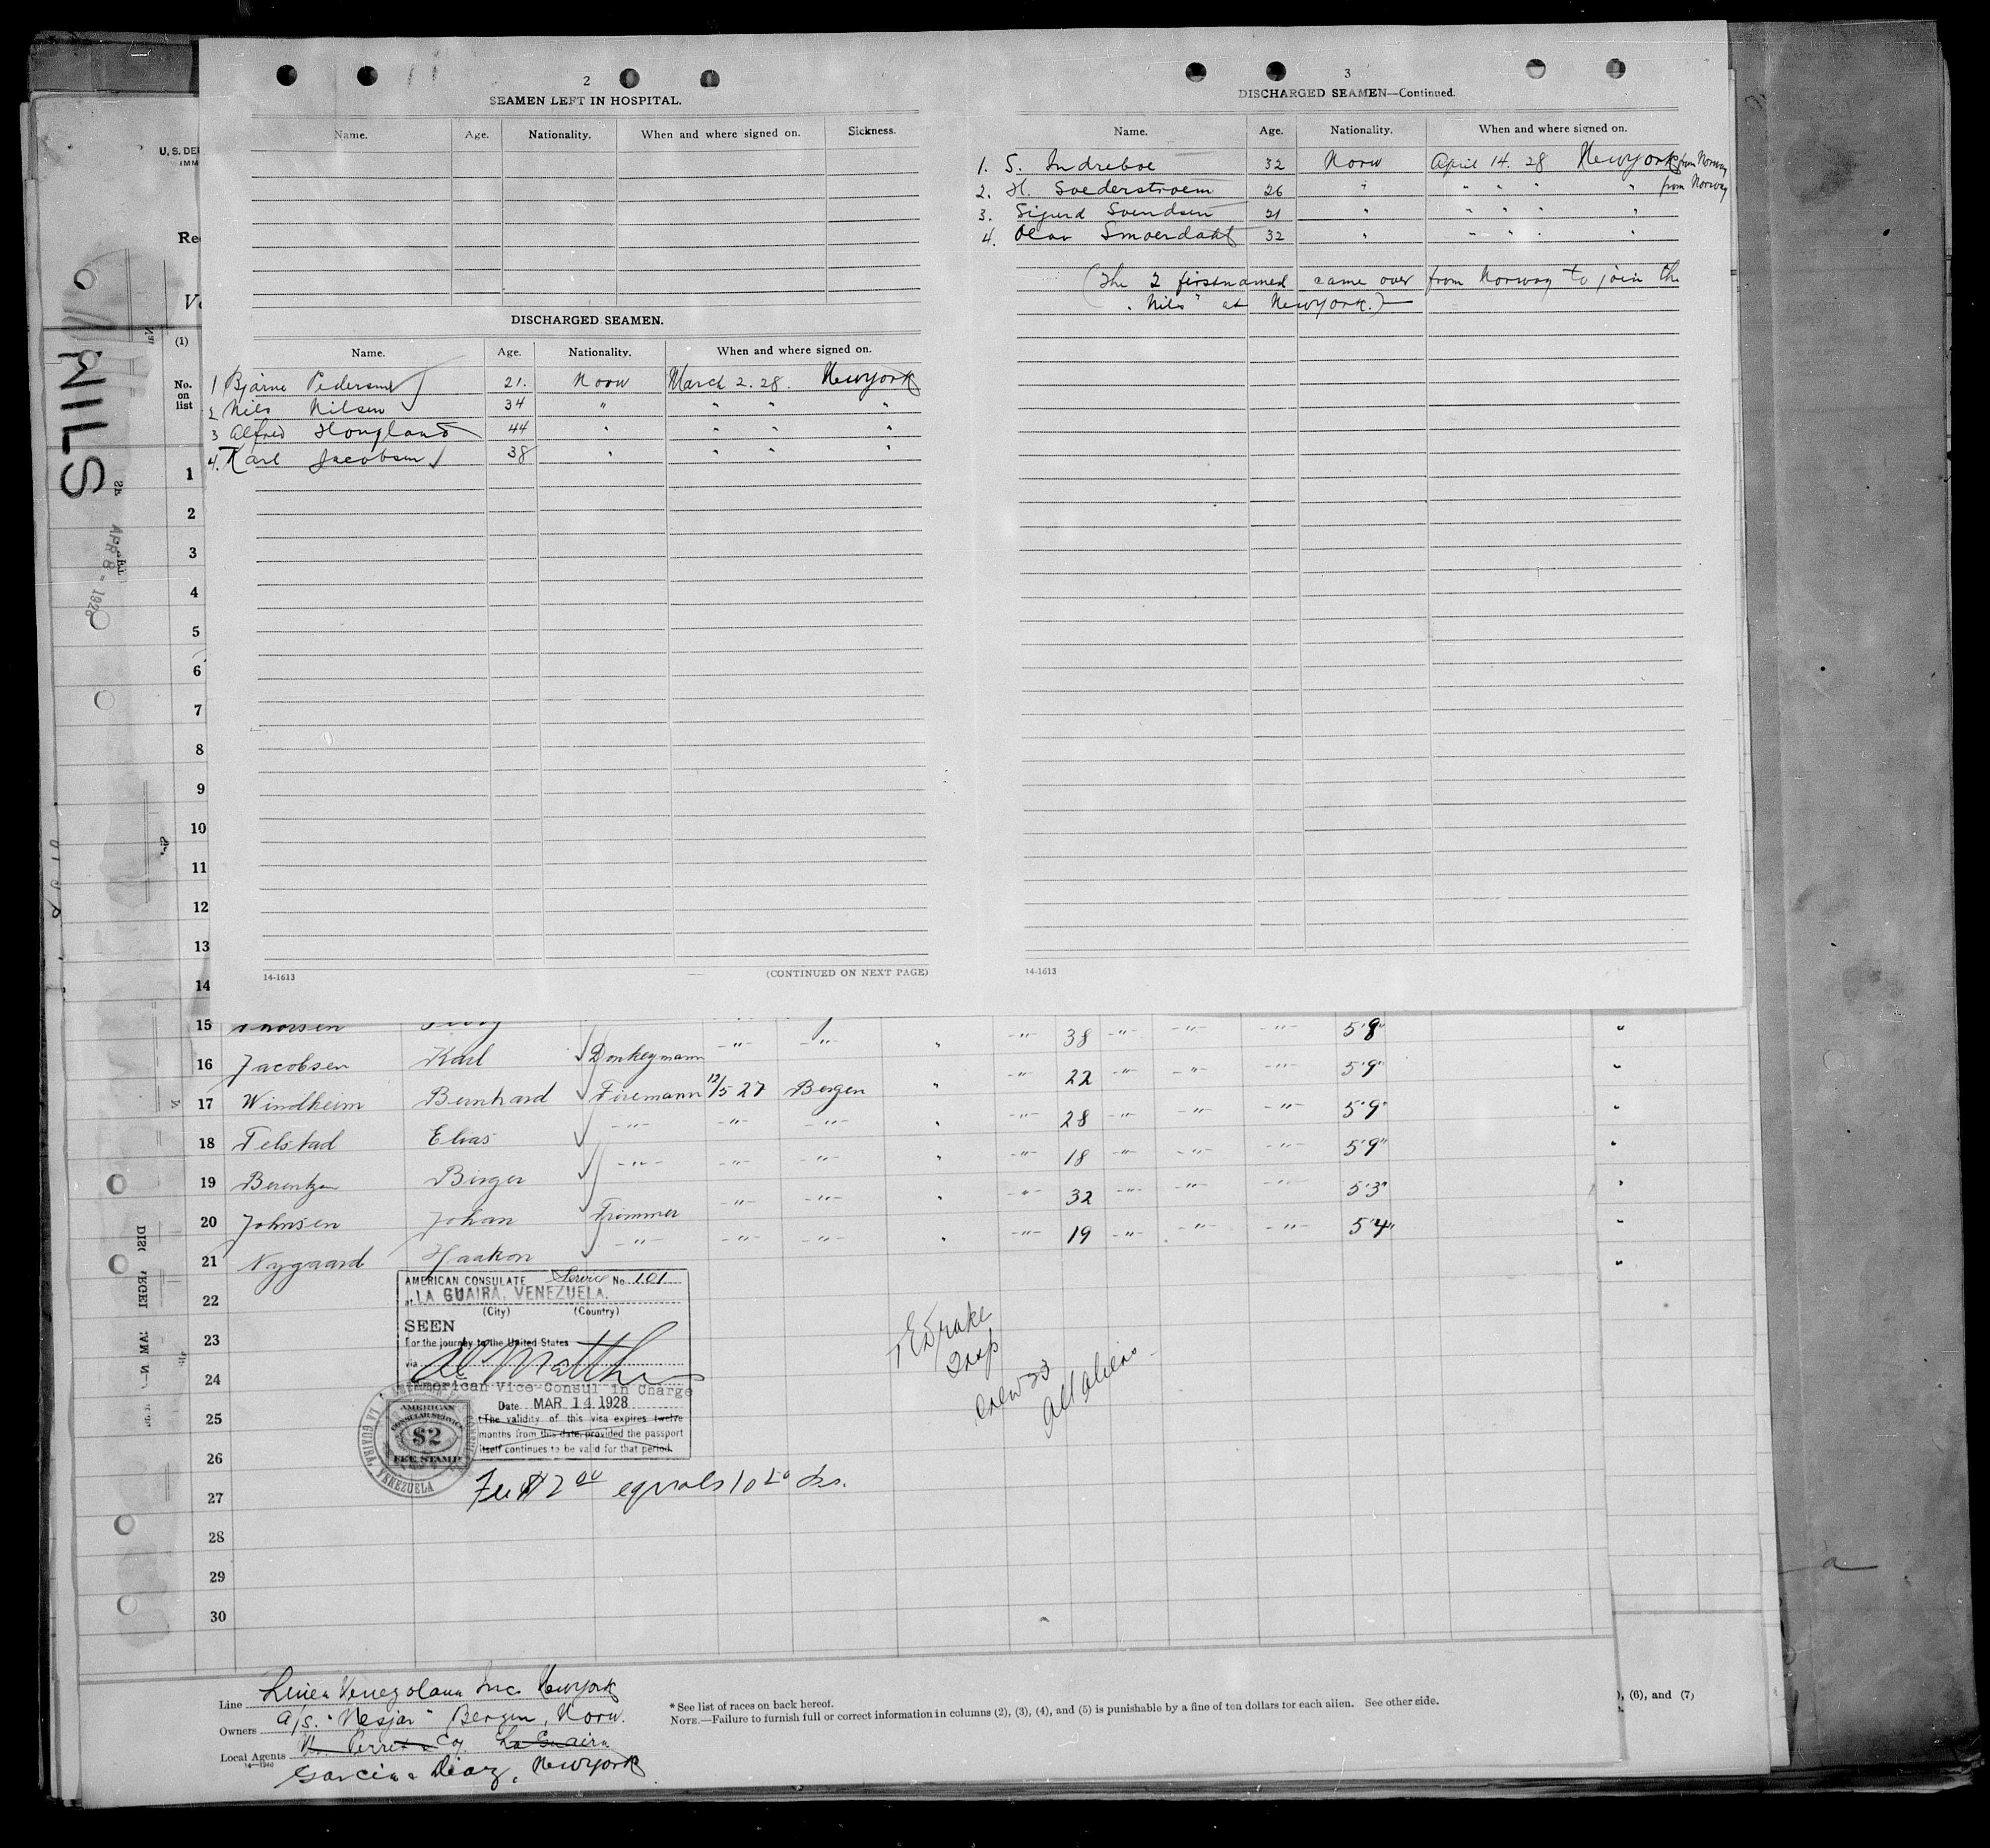 2
SEAMEN LEFT IN HOSPITAL.
Name. Age. Nationality. When and where signed on. Sickness.
DISCHARGED SEAMEN.
Name. Age. Nationality. When and where signed on.
1 Bjarne Pedersen 21. Norw March 2. 28. Newyork
2 Nils Nilsen 34 " " " "
3 Alfred Hougland 44 " " " "
4. Karl Jacobsen 38 " " " "
14-1613 (CONTINUED ON NEXT PAGE)
3
DISCHARGED SEAMEN—Continued.
Name. Age. Nationality. When and where signed on.
1. S. Indreboe 32 Norw April 14. 28 Newyork from Norway
2. H. Soederstroem 26 " " " " " from Norway
3. Sigurd Svendsen 21 " " " " "
4. Olav Smoerdahl 32 " " " " "
(The 2 firstnamed came over from Norway to join the
"Nils" at Newyork.)
14-1613
U. S. DE
IMM
Re
V
(1)
No.
on
list
NILS
APR 8 - 1928
1
2
3
4
5
6
7
8
9
10
11
12
13
14
15 38 -"- -"- -"- 5'8"
16 Jacobsen Karl Donkeymann -"- -"- " -"- 22 -"- -"- -"- 5'9" "
17 Windheim Bernhard Firemann 12/5 27 Bergen " -"- 28 -"- -"- -"- 5'9" "
18 Felstad Elias -"- -"- -"- " -"- 18 -"- -"- -"- 5'9" "
19 Berentzen Birger -"- -"- -"- " -"- 32 -"- -"- -"- 5'3" "
20 Johnsen Johan Trimmer -"- -"- " -"- 19 -"- -"- -"- 5'4" "
21 Nygaard Haakon -"- -"- -"- " "
22
23
24
25
26
27
28
29
30
AMERICAN CONSULATE Service No. 101
at LA GUAIRA, VENEZUELA.
(City) (Country)
SEEN
For the journey to the United States
via
American Vice Consul in Charge
Date MAR 14 1928
The validity of this visa expires twelve
months from this date, provided the passport
itself continues to be valid for that period.
AMERICAN
CONSULAR SERVICE
$2
FEE STAMP
LA GUAIRA, VENEZUELA
Fee $2 00 equals 10 40 Bs.
TEDrake
Insp
Crew 23
all aliens
Line Linea Venezolana Inc. Newyork
Owners A/S. "Nesjar" Bergen, Norw.
Local Agents H. Perret & Co. La Guaira
14—1240
Garcia & Diaz, Newyork
* See list of races on back hereof.
NOTE.—Failure to furnish full or correct information in columns (2), (3), (4), and (5) is punishable by a fine of ten dollars for each alien. See other side.
), (6), and (7)